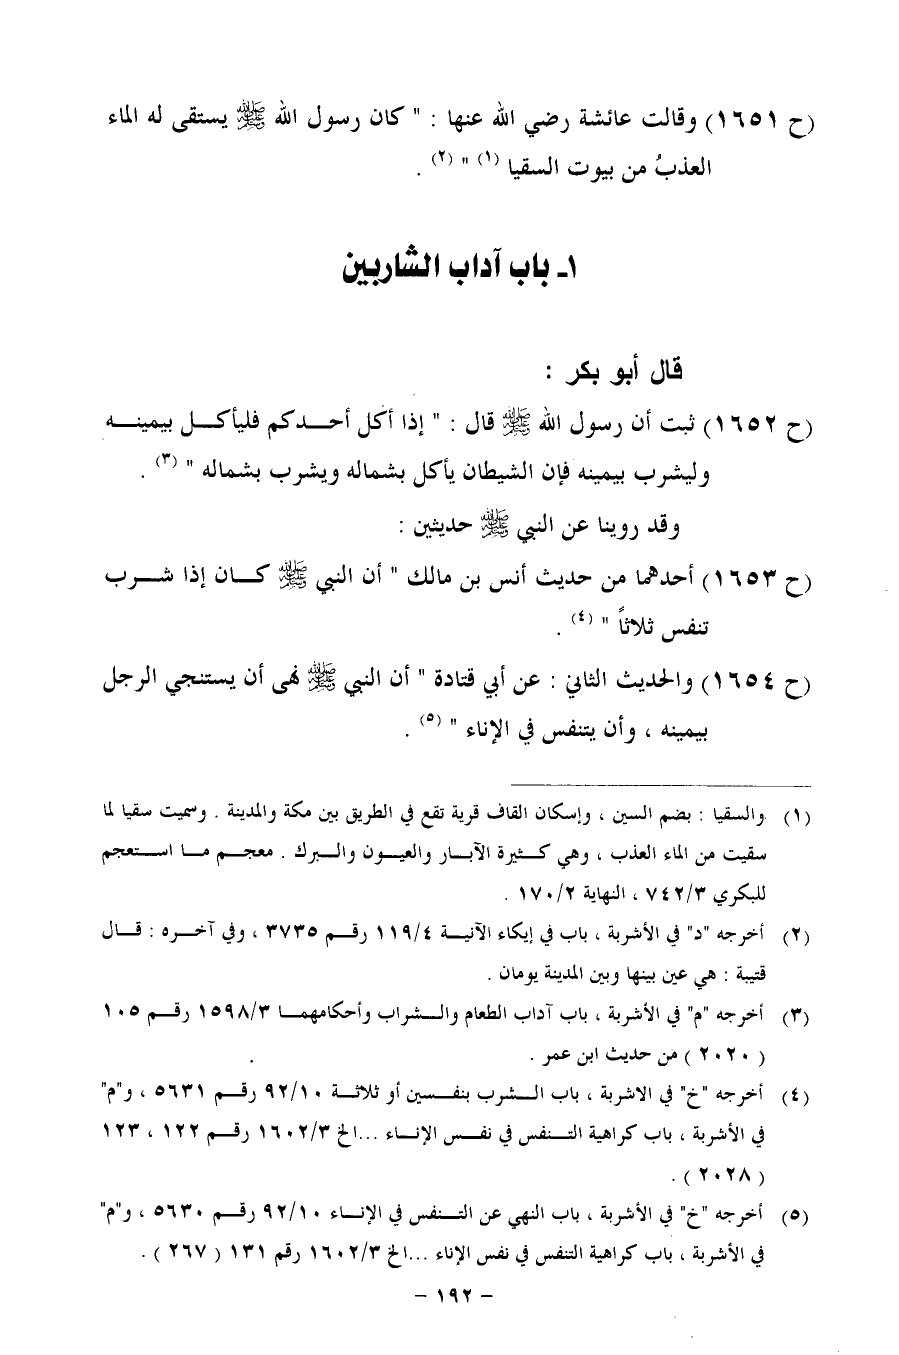 (ح ١٦٥١) وقالت عائشة رضي الله عنها : " كان رسول الله ﷺ يستقى له الماء
العذبُ من بيوت السقيا (١) " (٢) .
١ـ باب آداب الشاربين
قال أبو بكر :
(ح ١٦٥٢) ثبت أن رسول الله ﷺ قال : " إذا أكل أحدكم فليأكل بيمينه
وليشرب بيمينه فإن الشيطان يأكل بشماله ويشرب بشماله " (٣) .
وقد روينا عن النبي ﷺ حديثين :
(ح ١٦٥٣) أحدهما من حديث أنس بن مالك " أن النبي ﷺ كان إذا شرب
تنفس ثلاثاً " (٤) .
(ح ١٦٥٤) والحديث الثاني : عن أبي قتادة " أن النبي ﷺ نهى أن يستنجي الرجل
بيمينه ، وأن يتنفس في الإناء " (٥) .
(١) والسقيا : بضم السين ، وإسكان القاف قرية تقع في الطريق بين مكة والمدينة . وسميت سقيا لما
سقيت من الماء العذب ، وهي كثيرة الآبار والعيون والبرك . معجم ما استعجم
للبكري ٧٤٢/٣ ، النهاية ١٧٠/٢ .
(٢) أخرجه "د" في الأشربة ، باب في إيكاء الآنية ١١٩/٤ رقم ٣٧٣٥ ، وفي آخره : قال
قتيبة : هي عين بينها وبين المدينة يومان .
(٣) أخرجه "م" في الأشربة ، باب آداب الطعام والشراب وأحكامهما ١٥٩٨/٣ رقم ١٠٥
( ٢٠٢٠ ) من حديث ابن عمر .
(٤) أخرجه "خ" في الاشربة ، باب الشرب بنفسين أو ثلاثة ٩٢/١٠ رقم ٥٦٣١ ، و"م"
في الأشربة ، باب كراهية التنفس في نفس الإناء ...الخ ١٦٠٢/٣ رقم ١٢٢ ، ١٢٣
( ٢٠٢٨ ) .
(٥) أخرجه "خ" في الأشربة ، باب النهي عن التنفس في الإناء ٩٢/١٠ رقم ٥٦٣٠ ، و"م"
في الأشربة ، باب كراهية التنفس في نفس الإناء ...الخ ١٦٠٢/٣ رقم ١٣١ ( ٢٦٧ ) .
- ١٩٢ -